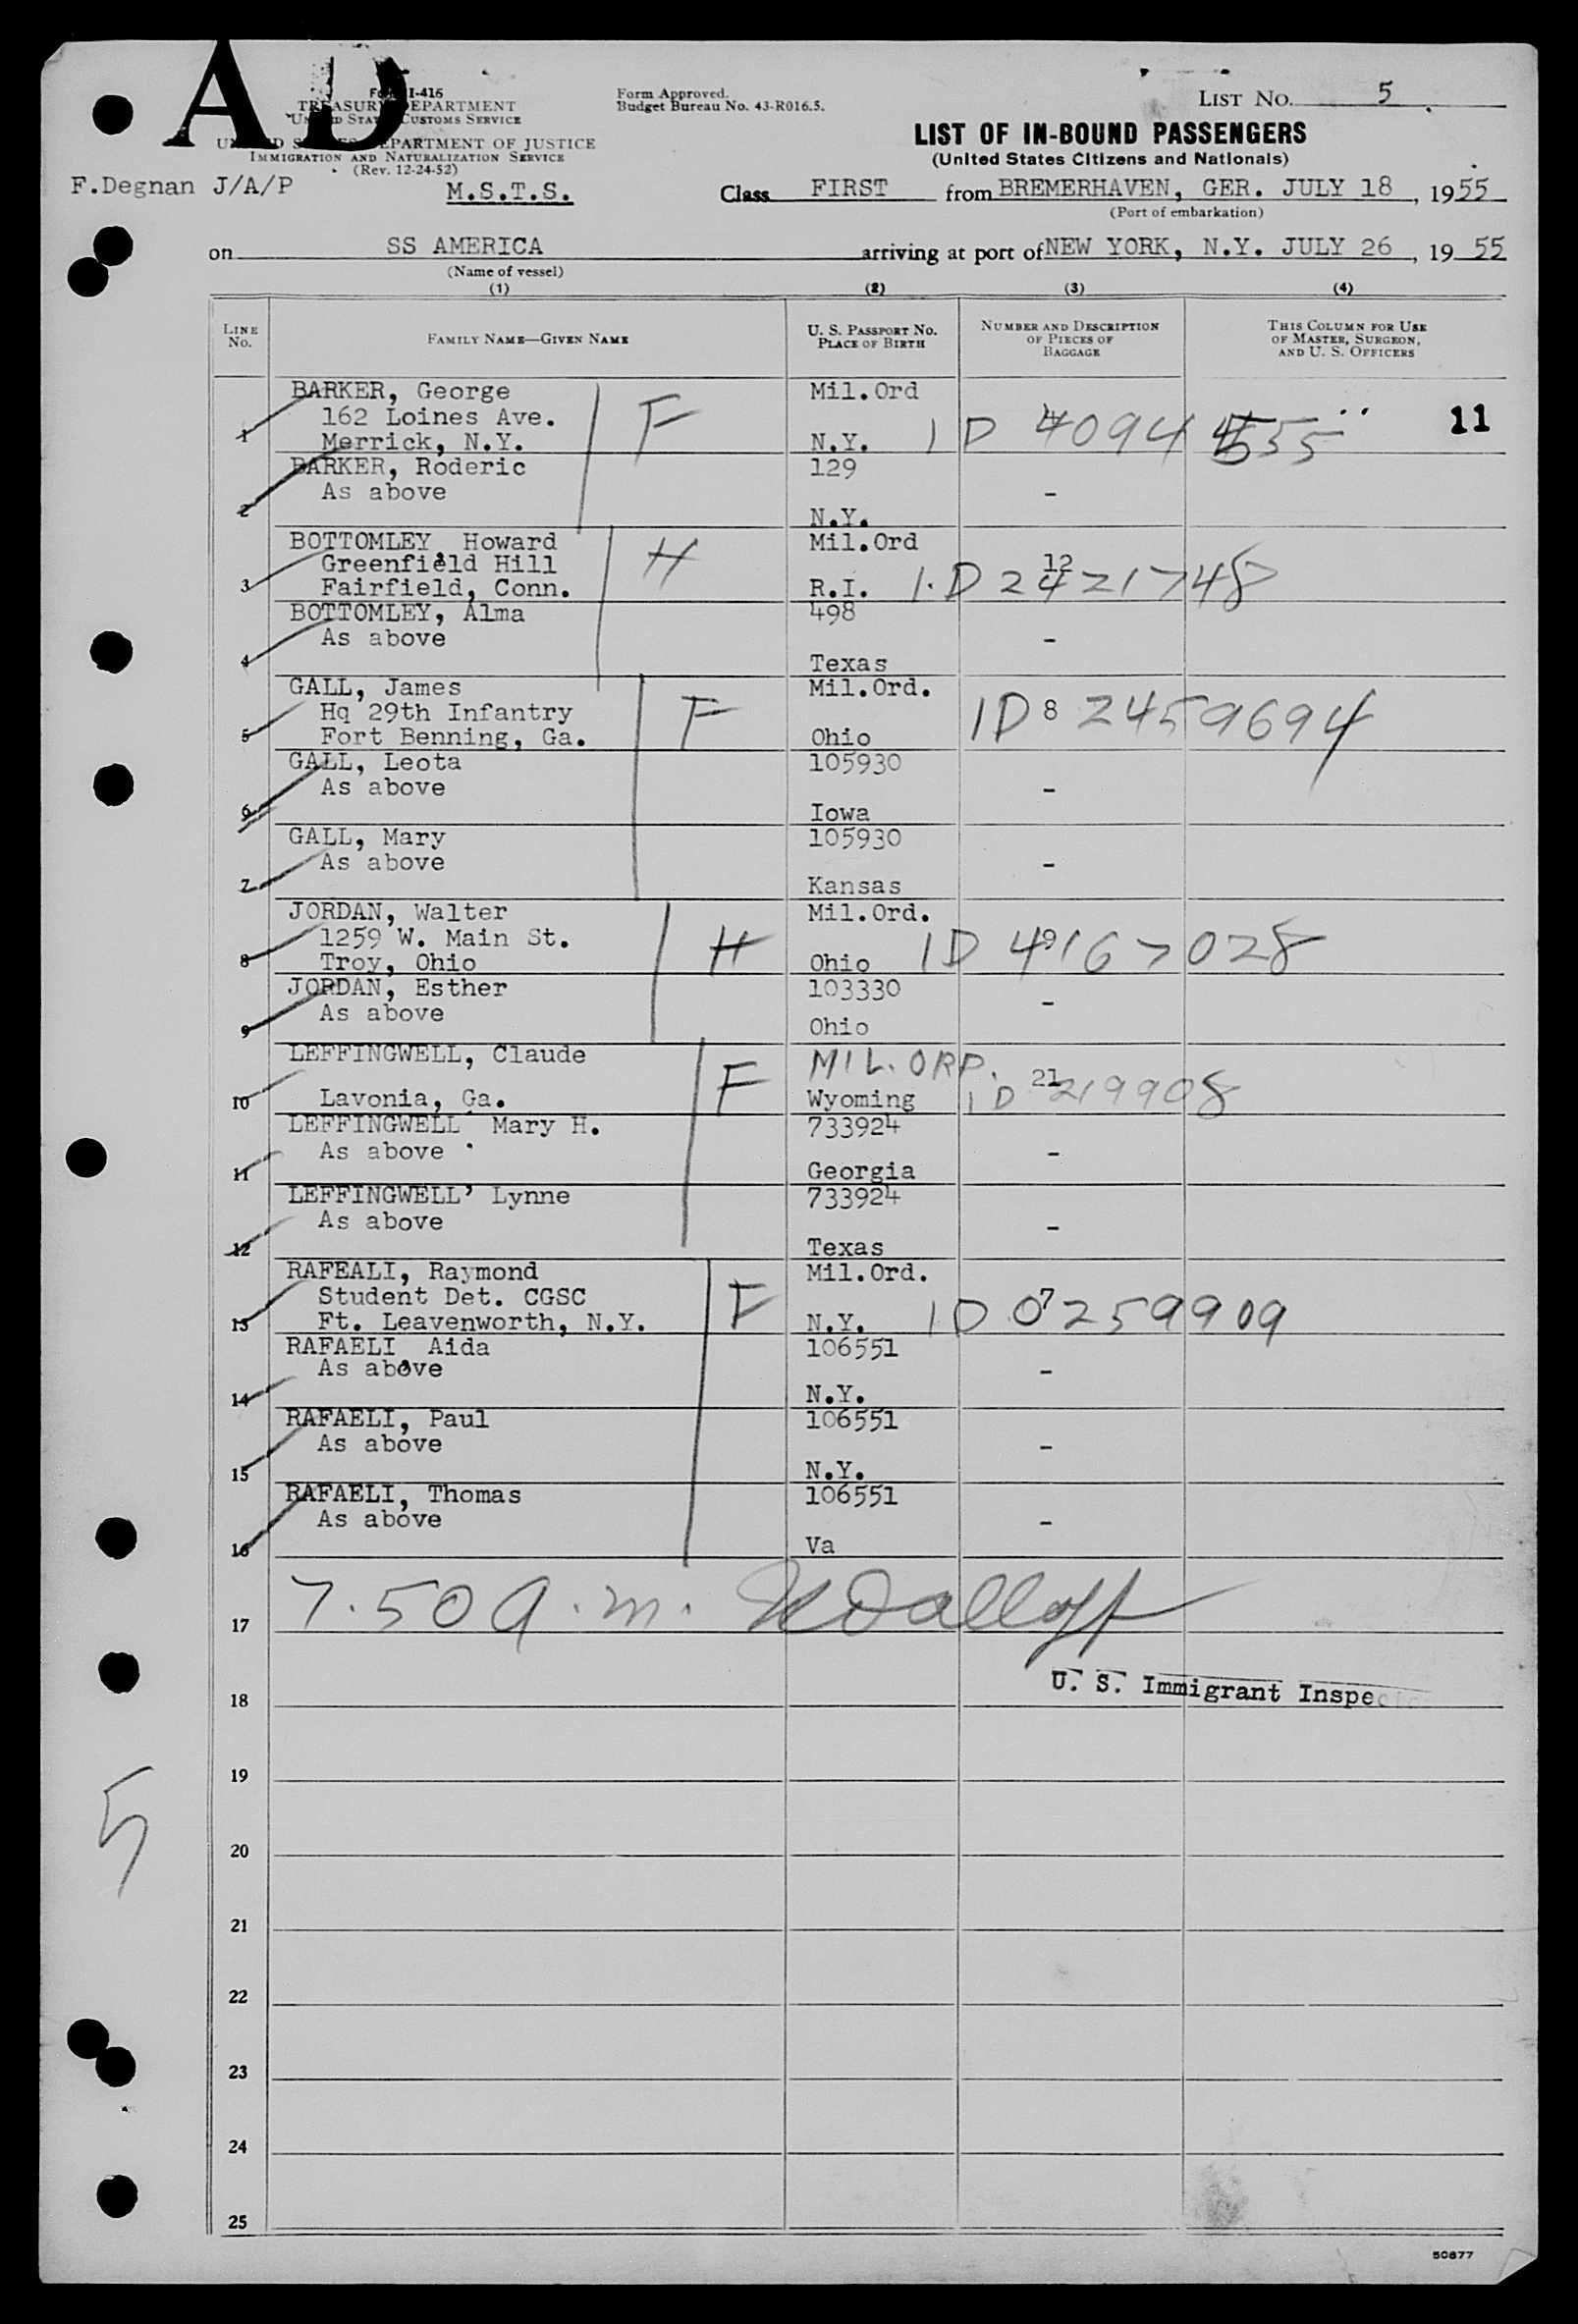 AD
Form I-416
TREASURY DEPARTMENT
UNITED STATES CUSTOMS SERVICE
UNITED STATES DEPARTMENT OF JUSTICE
IMMIGRATION AND NATURALIZATION SERVICE
(Rev. 12-24-52)
Form Approved.
Budget Bureau No. 43-R016.5.
LIST NO. 5
LIST OF IN-BOUND PASSENGERS
(United States Citizens and Nationals)
F.Degnan J/A/P M.S.T.S. Class FIRST from BREMERHAVEN, GER. JULY 18, 1955
(Port of embarkation)
on SS AMERICA arriving at port of NEW YORK, N.Y. JULY 26, 1955
(Name of vessel)
(1) (2) (3) (4)
LINE NO. FAMILY NAME—GIVEN NAME U. S. PASSPORT NO. PLACE OF BIRTH NUMBER AND DESCRIPTION OF PIECES OF BAGGAGE THIS COLUMN FOR USE OF MASTER, SURGEON, AND U. S. OFFICERS
BARKER, George Mil.Ord
162 Loines Ave. F 11
1 Merrick, N.Y. N.Y. ID 4094 555
BARKER, Roderic 129
As above -
2 N.Y.
BOTTOMLEY, Howard Mil.Ord
Greenfield Hill H 12
3 Fairfield, Conn. R.I. I.D 2421748
BOTTOMLEY, Alma 498
As above -
4 Texas
GALL, James Mil.Ord.
Hq 29th Infantry F ID 8 2459694
5 Fort Benning, Ga. Ohio
GALL, Leota 105930
As above -
6 Iowa
GALL, Mary 105930
As above -
7 Kansas
JORDAN, Walter Mil.Ord.
1259 W. Main St. H 9
8 Troy, Ohio Ohio ID 4167028
JORDAN, Esther 103330
As above -
9 Ohio
LEFFINGWELL, Claude MIL. ORD.
F 21
10 Lavonia, Ga. Wyoming ID 219908
LEFFINGWELL Mary H. 733924
As above -
11 Georgia
LEFFINGWELL, Lynne 733924
As above -
12 Texas
RAFEALI, Raymond Mil.Ord.
Student Det. CGSC F 7
13 Ft. Leavenworth, N.Y. N.Y. ID 0259909
RAFAELI Aida 106551
As above -
14 N.Y.
RAFAELI, Paul 106551
As above -
15 N.Y.
RAFAELI, Thomas 106551
As above -
16 Va
17 7.50 a.m.
U. S. Immigrant Inspector
18
19
5
20
21
22
23
24
25
50877